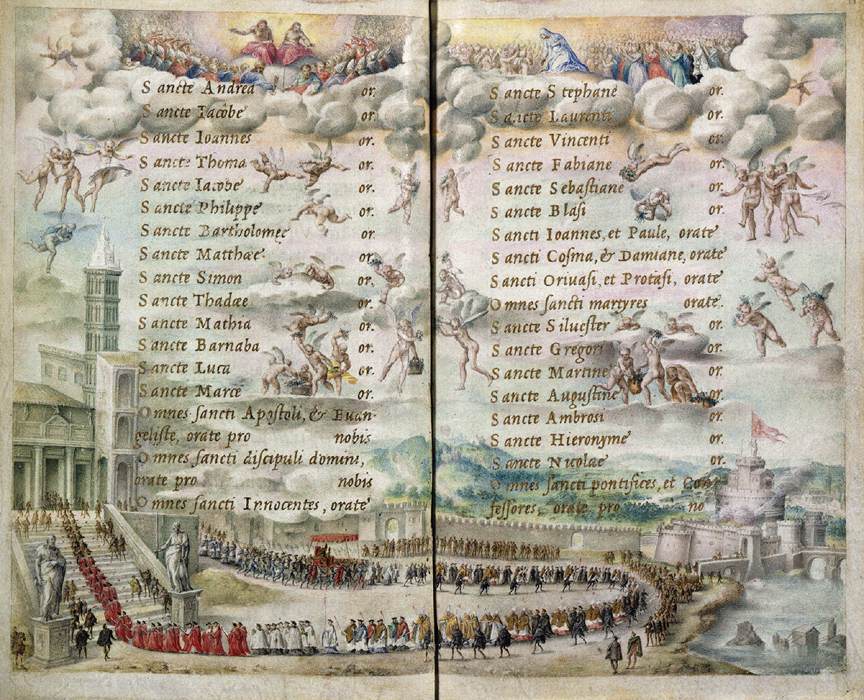 Sancte Andrea or.
Sancte Iacobe or.
Sancte Ioannes or.
Sancte Thoma or.
Sancte Iacobe or.
Sancte Philippe or.
Sancte Bartholomee or.
Sancte Matthaee or.
Sancte Simon or.
Sancte Thadae or.
Sancte Mathia or.
Sancte Barnaba or.
Sancte Luca or.
Sancte Marce or.
Omnes sancti Apostoli, & Euan-
geliste, orate pro nobis
Omnes sancti discipuli domini,
orate pro nobis
Omnes sancti Innocentes, orate
Sancte Stephane or.
Sancte Laurenti or.
Sancte Vincenti or.
Sancte Fabiane or.
Sancte Sebastiane or.
Sancte Blasi or.
Sancti Ioannes, et Paule, orate
Sancti Cosma, & Damiane, orate
Sancti Gruasi, et Protasi, orate
Omnes sancti martyres orate.
Sancte Siluester or.
Sancte Gregori or.
Sancte Martine or.
Sancte Augustine or.
Sancte Ambrosi or.
Sancte Hieronyme or.
Sancte Nicolae or.
Omnes sancti pontifices, et Con-
fessores, orate pro no